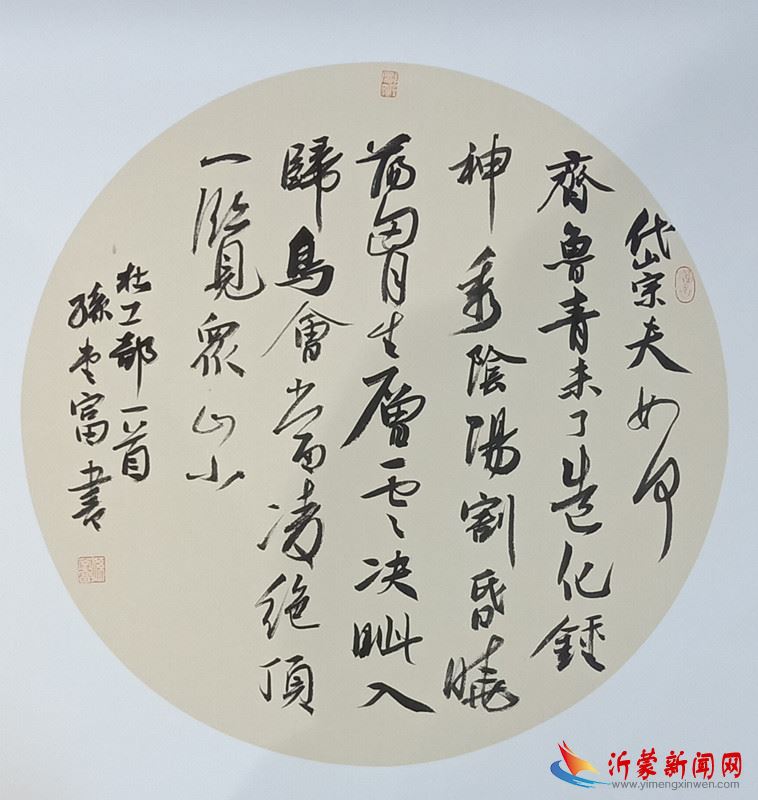 岱宗夫如何
齊魯青未了造化鍾
神秀陰陽割昏曉
蕩胷生層雲决眦入
歸鳥會當凌絶頂
一覽眾山小
杜工部一首
孫富書
沂蒙新闻网
www.yimengxinwen.com